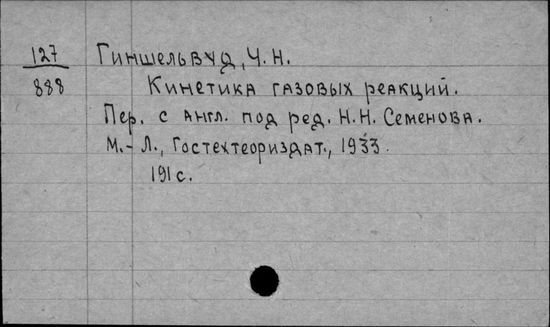 127 Гиншельвуд, Ч. Н.
888 Кинетика газовых реакций.
Пер. с англ. под ред. Н. Н. Семенова.
М.-Л., Гостехтеориздат., 1933.
191 с.